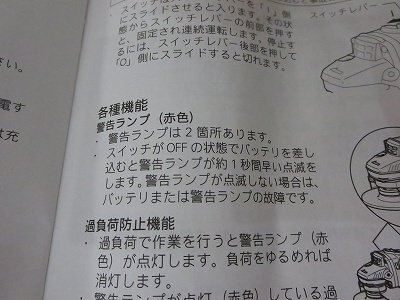 スイッチレバー
にスライドさせると入ります。その状
態からスイッチレバーの前部を押す
と、固定され連続運転します。停止す
るには、スイッチレバー後部を押して
「O」側にスライドすると切れます。
さい。
電す
は充
各種機能
警告ランプ（赤色）
・ 警告ランプは2箇所あります。
・ スイッチがOFFの状態でバッテリを差し
込むと警告ランプが約1秒間早い点滅を
します。警告ランプが点滅しない場合は、
バッテリまたは警告ランプの故障です。
過負荷防止機能
・ 過負荷で作業を行うと警告ランプ（赤
色）が点灯します。負荷をゆるめれば
消灯します。
・ 警告ランプが点灯（赤色）している過